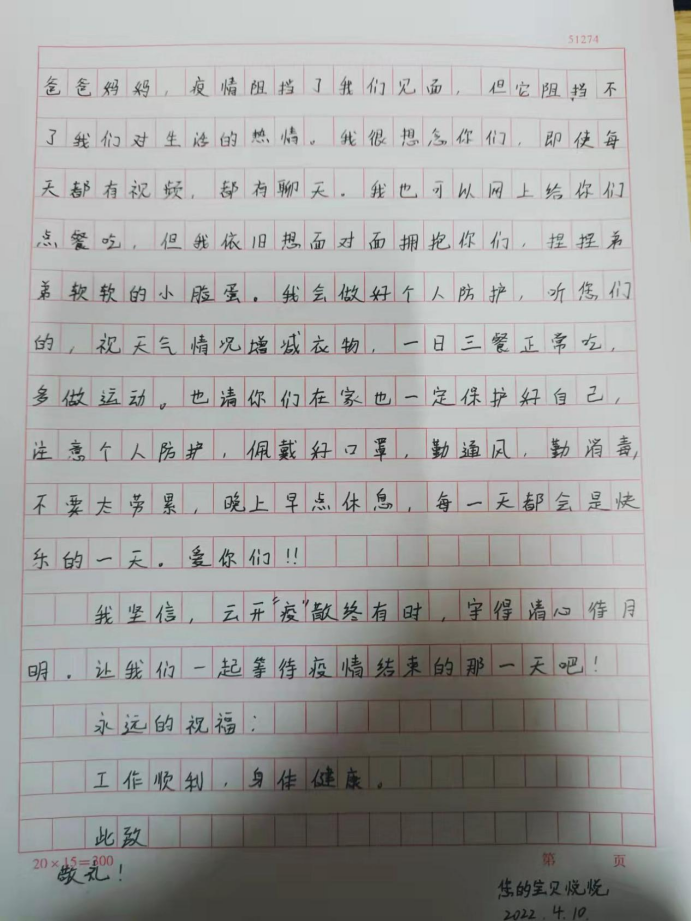 51274
爸爸妈妈，疫情阻挡了我们见面，但它阻挡不
了我们对生活的热情。我很想念你们，即使每
天都有视频，都有聊天。我也可以网上给你们
点餐吃，但我依旧想面对面拥抱你们，捏捏弟
弟软软的小脸蛋。我会做好个人防护，听您们
的，祝天气情况增减衣物，一日三餐正常吃，
多做运动。也请你们在家也一定保护好自己，
注意个人防护，佩戴好口罩，勤通风，勤消毒，
不要太劳累，晚上早点休息，每一天都会是快
乐的一天。爱你们!!
我坚信，云开“疫”散终有时，守得清心待月
明。让我们一起等待疫情结束的那一天吧！
永远的祝福：
工作顺利，身体健康。
此致
20×15=300 第 页
敬礼！
您的宝贝悦悦
2022.4.10